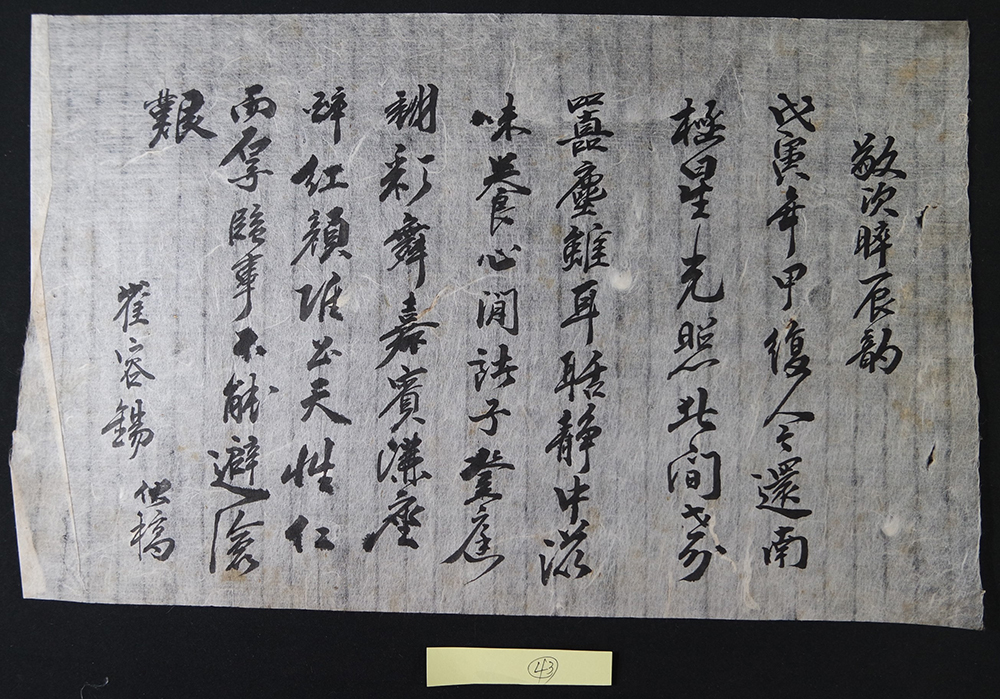 敬次晬辰韻
戊寅年甲復今還南
極星光照此間世務
囂塵雖耳聒靜中滋
味養心閒諸子登庭
翩彩舞嘉賓滿座
醉紅顔唯公天性仁
而厚臨事不能避險
艱
崔容錫 伏稿
43